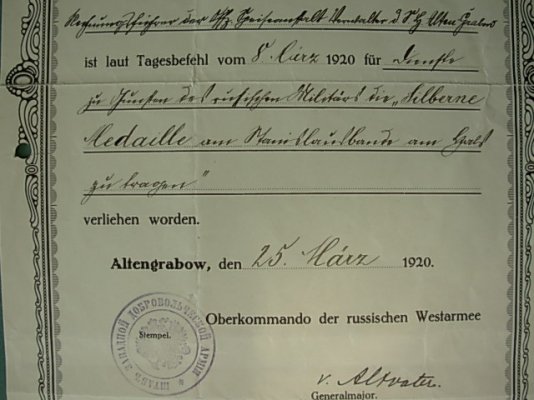 Rechnungsführer der Offz. Speiseanstalt Verwalter d. S. L. Alten Grabow
ist laut Tagesbefehl vom 8. März 1920 für Dienste
zu Gunsten des russischen Militärs die „Silberne
Medaille am Stanislausbande am Hals
zu tragen"
verliehen worden.
Altengrabow, den 25. März 1920.
ШТАБЪ ЗАПАДНОЙ ДОБРОВОЛЬЧЕСКОЙ АРМІИ
Stempel.
Oberkommando der russischen Westarmee
v. Altvater.
Generalmajor.